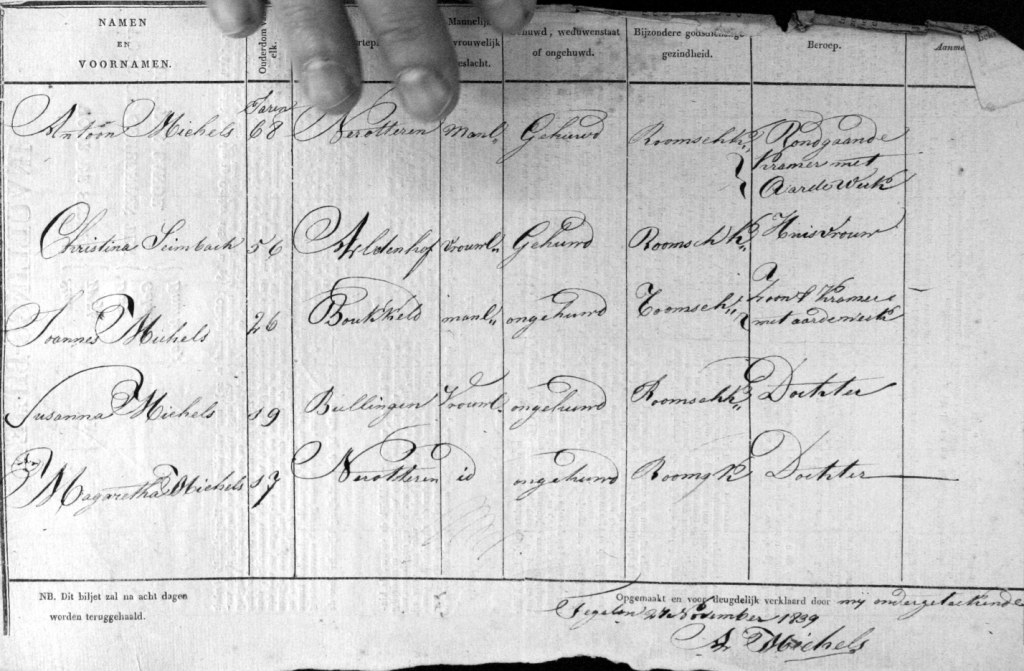 NAMEN
EN
VOORNAMEN.
Ouderdom
elk.
Mannelijk
vrouwelijk
geslacht.
weduwenstaat
of ongehuwd.
Bijzondere
gezindheid.
Beroep.
Jaren
Antoon Michels 68 Nerotteren manl. Gehuwd Roomsch K. Rondgaande
Kramer met
Aarde Werk
Christina Seimbach 56 Aldenhof vrouwl. Gehuwd Roomsch K. Huisvrouw
Joannes Michels 26 manl. ongehuwd Roomsch Zoon & Kramer
met aardewerk
Susanna Michels 19 Bullingen Vrouwl. ongehuwd Roomsch K. Dochter
Magaretha Michels 17 Nerotteren id ongehuwd Roomsch K Dochter
NB. Dit biljet zal na acht dagen
worden teruggehaald.
Opgemaakt en voor deugdelijk verklaard door mij ondergeteekende
Tegelen 27 November 1839
A. Michels